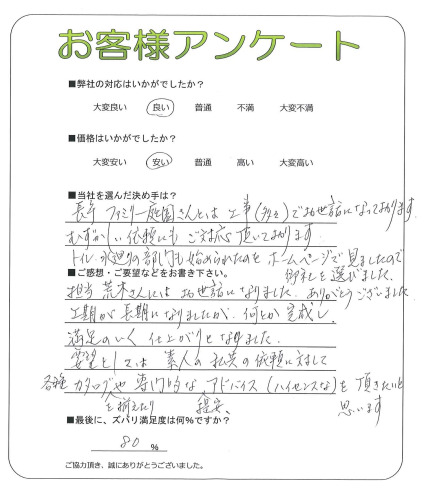 お客様アンケート
■弊社の対応はいかがでしたか？
大変良い 良い 普通 不満 大変不満
■価格はいかがでしたか？
大変安い 安い 普通 高い 大変高い
■当社を選んだ決め手は？
長年 ファミリー庭園さんとは 工事(多々)でお世話になっております
むずかしい依頼にも ご対応頂いております
トイレ 水廻りの部門も始められたのを ホームページで見ましたので
御社を選びました。
■ご感想・ご要望などをお書き下さい。
担当 荒木さんには お世話になりました。ありがとうございました
工期が長期になりましたが、何とか完成し、
満足のいく 仕上がりとなりました。
要望としては 素人の私共の依頼に対して
各種カタログや 専門的な アドバイス(ハイセンスな)を 頂きたいと
を揃えたり 提案、 思います
■最後に、ズバリ満足度は何％ですか？
80 ％
ご協力頂き、誠にありがとうございました。